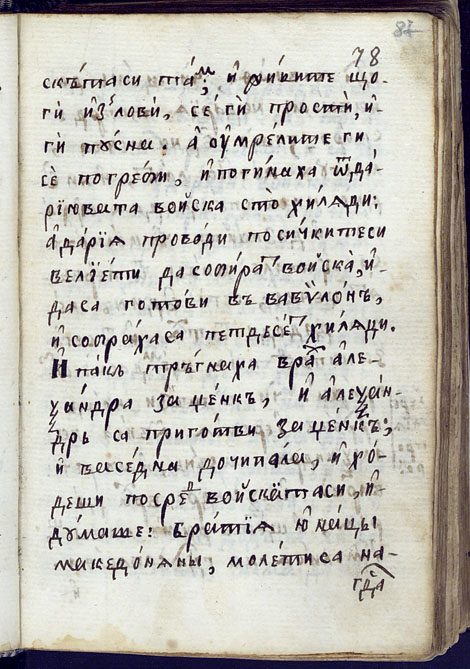 87
78
скѣ́таси та́м; и҆ жи́вите що-
ги и҆зло́ви, се ги прости, и҆-
ги пꙋсна. а҆ ᲂу҆мре́лите ги
се погребѝ, и҆погинаха ѿда-
рїювата войска сто̀ хилѧди;
а҆да́рїѧ проводи посичкитеси
велїе́ти дасобира войска̀, и҆-
даса гото́ви въ вавѷло́нъ,
и҆ собрахаса петдесе́т хилѧди.
И҆ пакъ тръгнаха врат але-
ѯа́ндра за це́нкъ, и҆ а҆леѯан-
дръ са приготви за це́нкъ;
и҆ васе́дна дочипала, и҆ хо́-
деши посред войскѫтаси, и҆-
дꙋ́маше: братїѧ ю҆на́цы
македо́нѧны, моле́тиса на-
гда